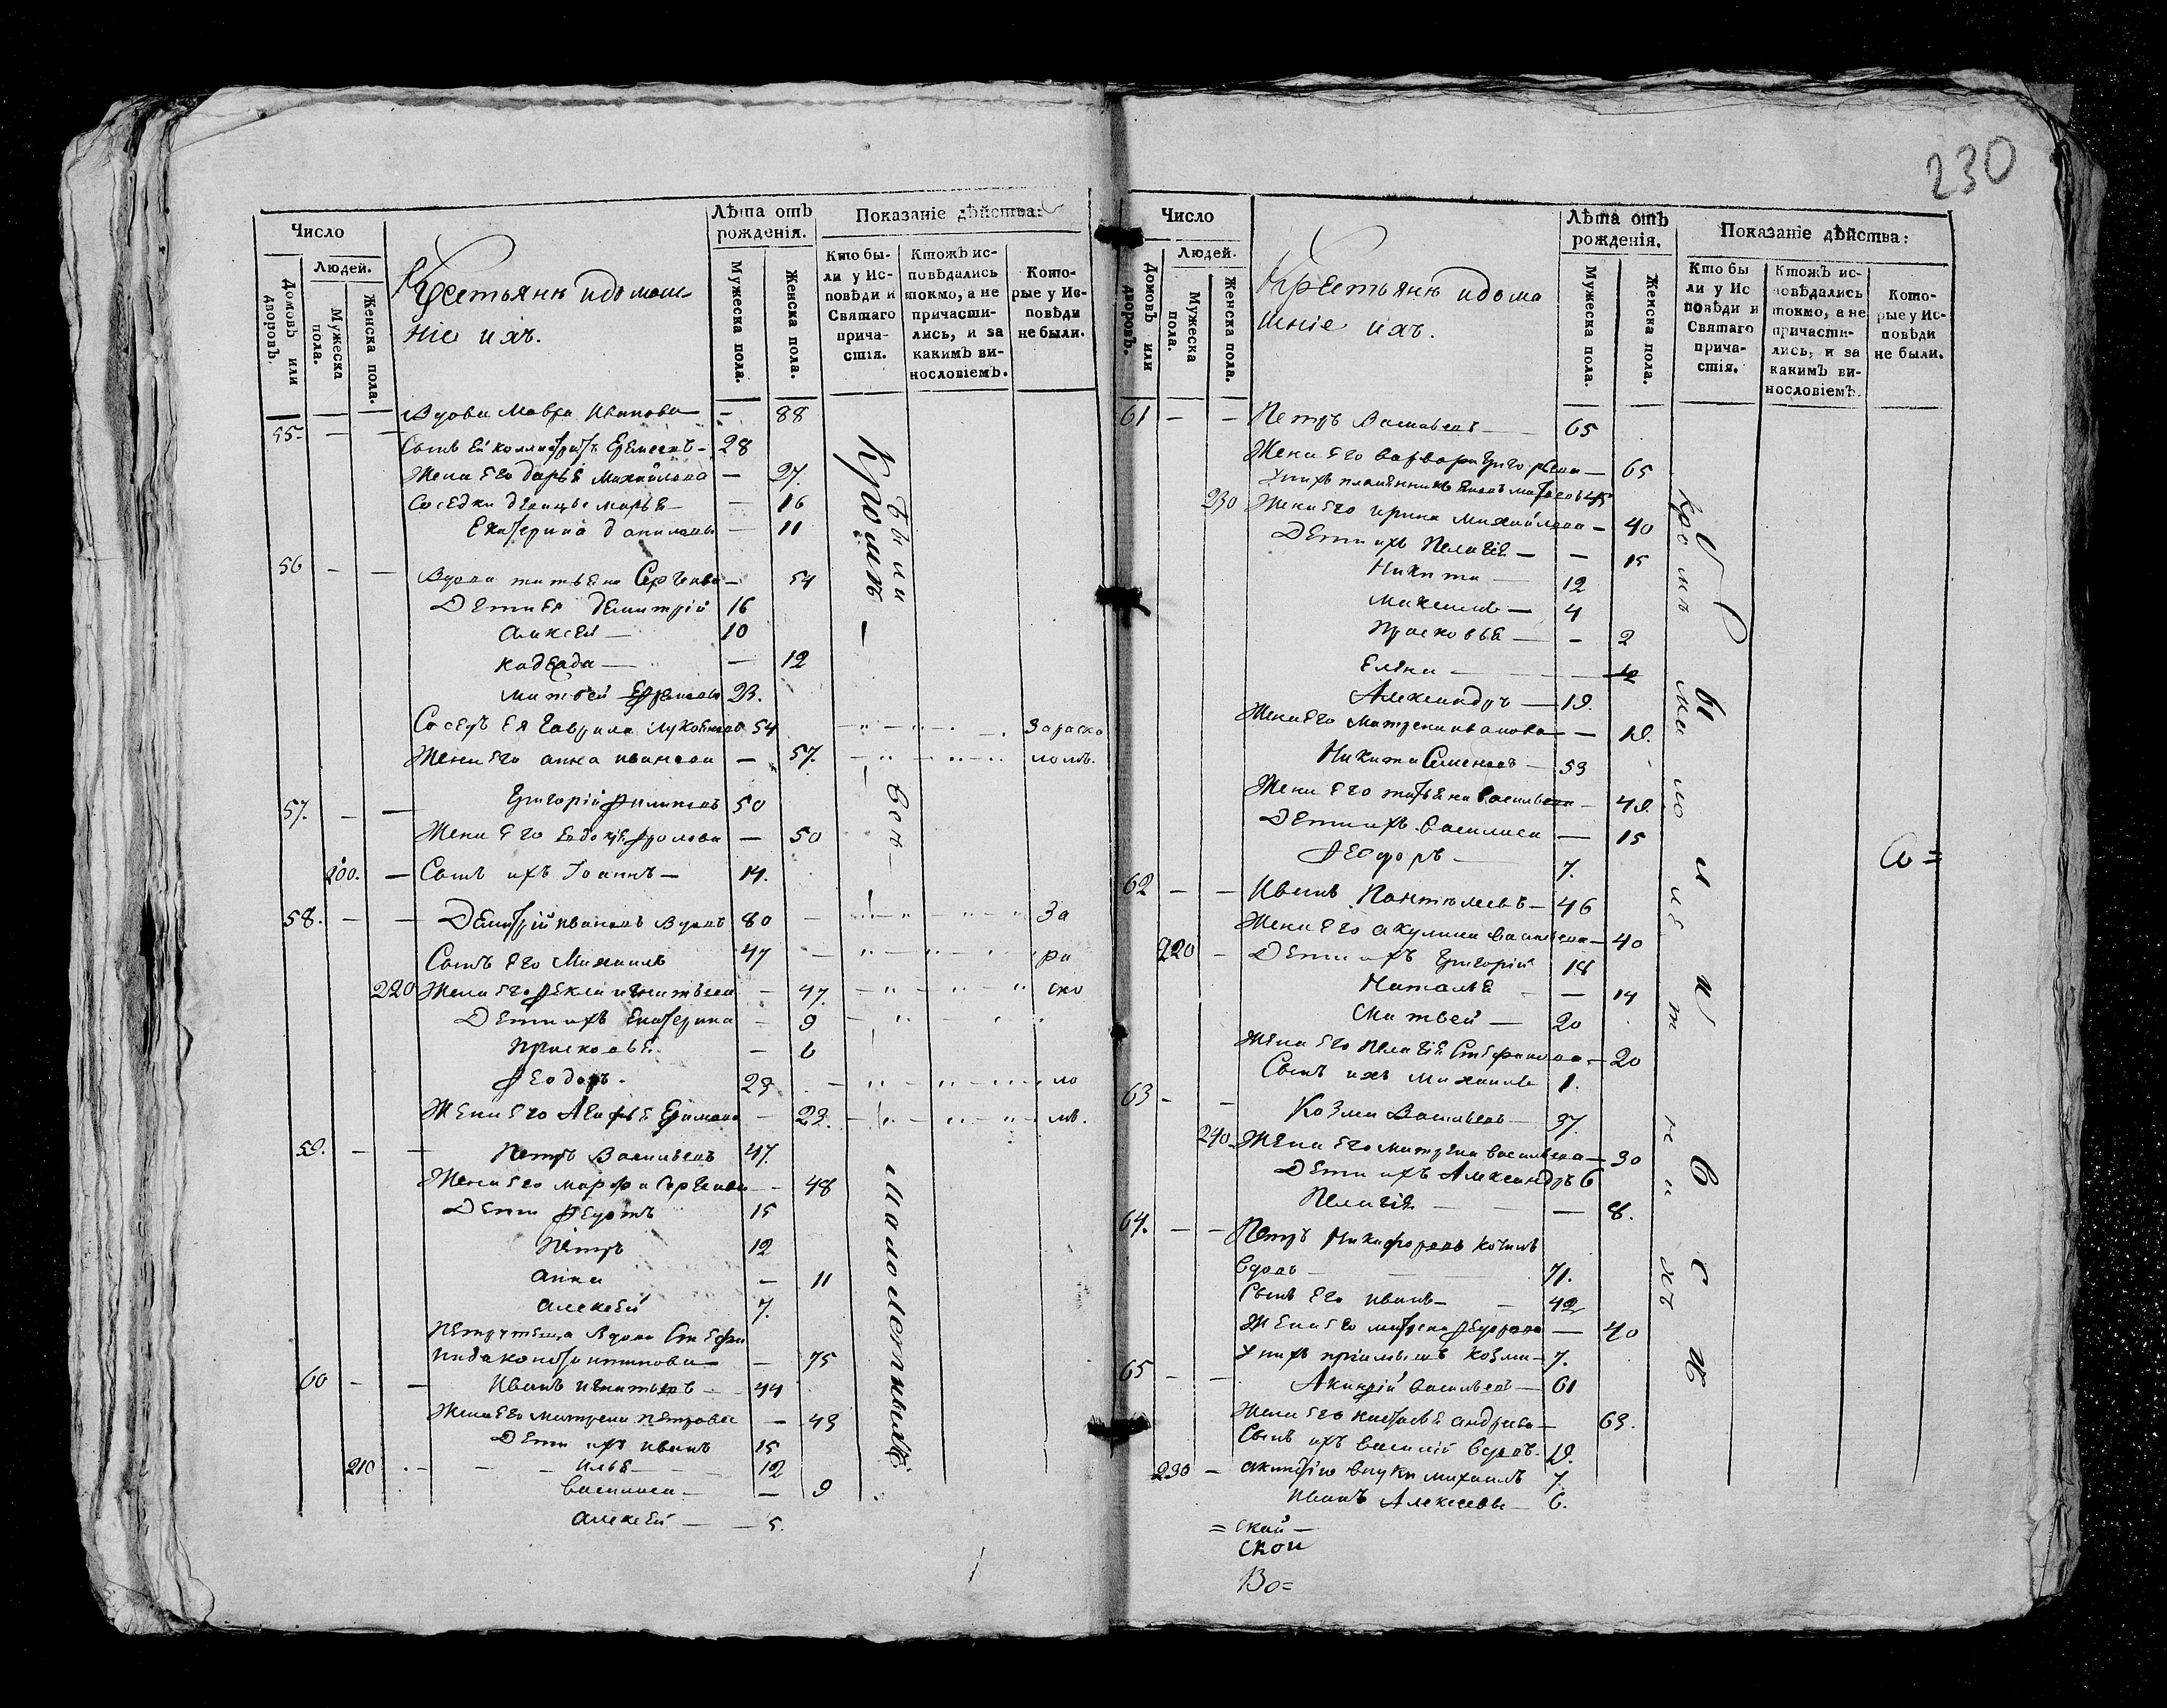 230
Число
Людей.
Домовъ или дворовъ.
Мужеска пола.
Женска пола.
Крестьяне и домаш-
ніе ихъ.
Лѣта отъ
рожденія.
Мужеска пола.
Женска пола.
Показаніе дѣйства:
Кто бы-
ли у Ис-
повѣди и
Святаго
прича-
стія.
Ктожъ ис-
повѣдались
токмо, а не
причасти-
лись, и за
какимъ ви-
нословіемъ.
Кото-
рые у Ис-
повѣди
не были.
Вдова Мавра Иванова — 88
55. — —
Сынъ ей Еремеевъ — 28
Жена его Дарья Михайлова — 27.
Соседки девицы Марья — 16
Екатерина Данилова — 11
56 — — Вдова татьяна Сергеева — 54
Дети ея Димитрій 16
Алексей — 10
— 12
Матвей 23.
Соседъ ея Гаврила 54 За раско
Жена его анна иванова — 57. ломъ.
57. — — Григорій Филиповъ 50
Жена его Евдокія Фролова — 50
200. — Сынъ ихъ Іоаннъ — 14.
58. — — Димитрій ивановъ вдовъ 80 За
Сынъ его Михаилъ 47 ра
220 Жена его Фекла игнатьева — 47. ско
Дети ихъ Екатерина — 9
Прасковья — 6
Феодоръ. 29 ло
Жена его Агафья — 29. мъ.
59. — — Петръ Васильевъ 47.
Жена его марфа Сергеева — 48
Дети Федотъ 15
Петръ 12
Анна — 11
Алексей 7.
Петру теща вдова
— 75
60 — — Иванъ игнатьевъ — 44
Жена его матрена петрова — 43
Дети ихъ иванъ 15
210 . — — — илья — 12
василиса — — 9
алексей — — 5.
Кромѣ —
Были
Всѣ —
Малолетныхъ
Число
Людей.
Домовъ или дворовъ.
Мужеска пола.
Женска пола.
Крестьяне и дома
шніе ихъ.
Лѣта отъ
рожденія.
Мужеска пола.
Женска пола.
Показаніе дѣйства:
Кто бы
ли у Ис
повѣди и
Святаго
прича-
стія.
Ктожъ ис-
повѣдались
токмо, а не
причасти-
лись, и за
какимъ ви-
нословіемъ.
Кото-
рые у Ис-
повѣди
не были.
61 — — Петръ Васильевъ — 65
Жена его варвара григорьева — 65
У нихъ племянникъ 45
230 Жена его ирина михайлова — 40
Дети ихъ Пелагія — — 15
Никита — 12
Михаилъ — 4
Прасковья — — 2
Елена — — 12
Александръ — 19.
Жена его матрена иванова — — 19.
Никита Семеновъ — 53
Жена его татьяна васильева — 49.
Дети ихъ. Василиса — 15
Феодоръ — 7.
62 — — Иванъ Пантелеевъ — 46
Жена его акулина васильева — 40
220 — Дети ихъ Григорій 18
Наталья — — 14
Матвей — 20
Жена его Пелагія Стефанова — 20
Сынъ ихъ михаилъ 1.
63 — — Козма Васильевъ — 37.
240. Жена его матрена васильева — 30
Дети ихъ Александръ 6
Пелагія — — 8.
64. — — Петръ Никифоровъ
вдовъ — 71.
Сынъ его иванъ — — 42
Жена его матрена федорова — 40
У нихъ пріемышъ Козма — 7.
65 — — васильевъ — 61
Жена его андреева — 63.
Сынъ ихъ василій вдовъ. 19.
230 — внуки михаилъ 7.
Иванъ Алексеевъ — 6.
= скай —
скои
Во=
Кромѣ
малолетнихъ
Были всѣ
Со=